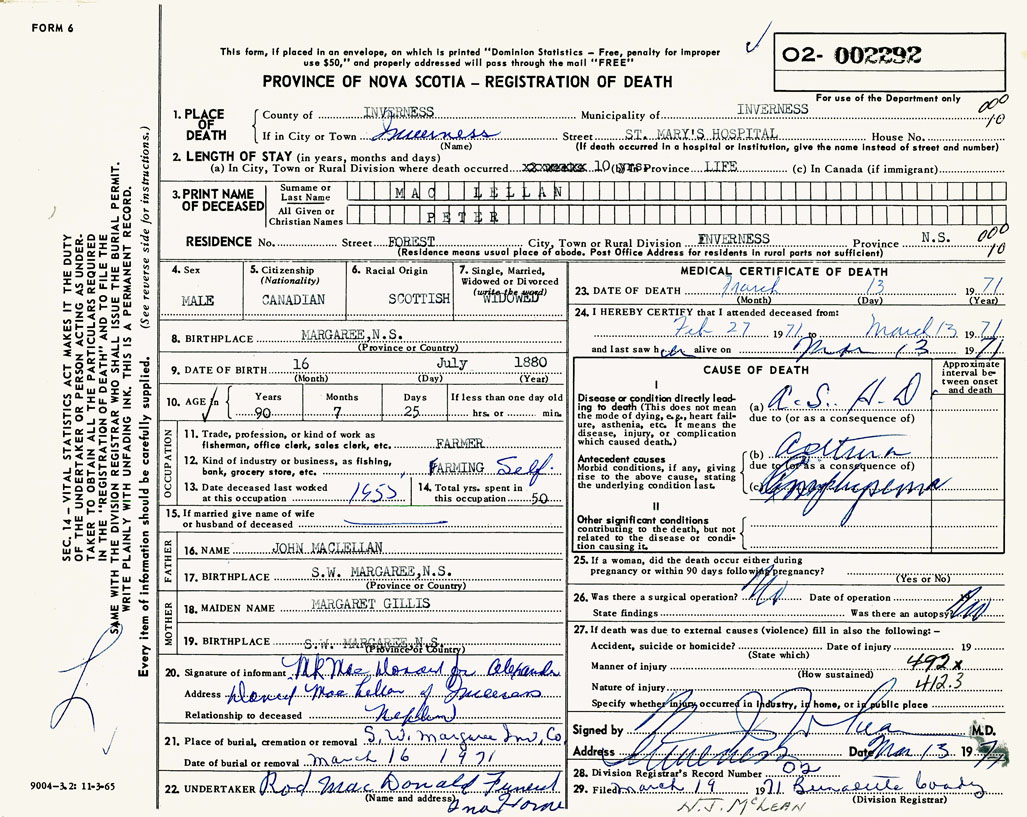 FORM 6
This form, if placed in an envelope, on which is printed "Dominion Statistics – Free, penalty for improper
use $50," and properly addressed will pass through the mail "FREE"
02- 002292
PROVINCE OF NOVA SCOTIA – REGISTRATION OF DEATH
For use of the Department only
1. PLACE OF DEATH
County of INVERNESS Municipality of INVERNESS 000
If in City or Town Inverness Street ST. MARY'S HOSPITAL House No. 10
(Name) (If death occurred in a hospital or institution, give the name instead of street and number)
2. LENGTH OF STAY (in years, months and days)
(a) In City, Town or Rural Division where death occurred 10 yrs. (b) In Province LIFE (c) In Canada (if immigrant)
3. PRINT NAME OF DECEASED
Surname or Last Name MAC LELLAN
All Given or Christian Names PETER
RESIDENCE No. Street FOREST City, Town or Rural Division INVERNESS Province N.S. 000
(Residence means usual place of abode. Post Office Address for residents in rural parts not sufficient) 10
4. Sex
MALE
5. Citizenship
(Nationality)
CANADIAN
6. Racial Origin
SCOTTISH
7. Single, Married,
Widowed or Divorced
(write the word)
WIDOWED
8. BIRTHPLACE MARGAREE, N.S.
(Province or Country)
9. DATE OF BIRTH 16 July 1880
(Month) (Day) (Year)
10. AGE in Years Months Days If less than one day old
90 7 25 hrs. or min.
OCCUPATION
11. Trade, profession, or kind of work as
fisherman, office clerk, sales clerk, etc. FARMER
12. Kind of industry or business, as fishing,
bank, grocery store, etc. FARMING Self.
13. Date deceased last worked
at this occupation 1955
14. Total yrs. spent in
this occupation 50
15. If married give name of wife
or husband of deceased
FATHER
16. NAME JOHN MACLELLAN
17. BIRTHPLACE S.W. MARGAREE, N.S.
(Province or Country)
MOTHER
18. MAIDEN NAME MARGARET GILLIS
19. BIRTHPLACE S.W. MARGAREE N.S.
(Province or Country)
20. Signature of informant for Alexander
Address Daniel MacLellan of Inverness
Relationship to deceased Nephew
21. Place of burial, cremation or removal S. W. Margaree Inv. Co
Date of burial or removal March 16 1971
22. UNDERTAKER Rod MacDonald Funeral
(Name and address) Home
MEDICAL CERTIFICATE OF DEATH
23. DATE OF DEATH March 13 1971
(Month) (Day) (Year)
24. I HEREBY CERTIFY that I attended deceased from:
Feb 27 1971 to March 13 1971
and last saw h alive on Mar 13 1971
CAUSE OF DEATH
Approximate
interval be-
tween onset
and death
I
Disease or condition directly lead-
ing to death (This does not mean
the mode of dying, e.g., heart fail-
ure, asthenia, etc. It means the
disease, injury, or complication
which caused death.)
(a) A. S. H. D
due to (or as a consequence of)
Antecedent causes
Morbid conditions, if any, giving
rise to the above cause, stating
the underlying condition last.
(b)
due to (or as a consequence of)
(c) Emphysema
II
Other significant conditions
contributing to the death, but not
related to the disease or condi-
tion causing it.
25. If a woman, did the death occur either during
pregnancy or within 90 days following pregnancy?
(Yes or No)
26. Was there a surgical operation? No Date of operation 19
State findings Was there an autopsy No
27. If death was due to external causes (violence) fill in also the following: –
Accident, suicide or homicide? Date of injury 19
(State which)
Manner of injury 492x
(How sustained)
Nature of injury 412.3
Specify whether injury occurred in Industry, in home, or in public place
Signed by M.D.
Address Inverness Date Mar 13 1971
28. Division Registrar's Record Number 02
29. Filed March 19 1971 Bernadette Coady
(Division Registrar)
W.J. McLEAN
SEC. 14 – VITAL STATISTICS ACT MAKES IT THE DUTY
OF THE UNDERTAKER OR PERSON ACTING AS UNDER-
TAKER TO OBTAIN ALL THE PARTICULARS REQUIRED
IN THE "REGISTRATION OF DEATH" AND TO FILE THE
SAME WITH THE DIVISION REGISTRAR WHO SHALL ISSUE THE BURIAL PERMIT.
WRITE PLAINLY WITH UNFADING INK. THIS IS A PERMANENT RECORD.
Every item of information should be carefully supplied. (See reverse side for instructions.)
9004-3.2: 11-3-65